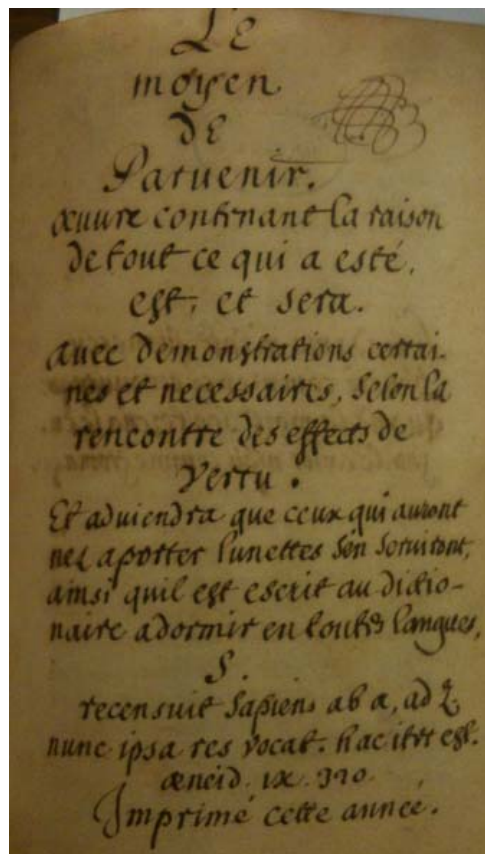 Le
moyen
DE
Paruenir.
œuure contenant la raison
de tout ce qui a esté,
est, et sera.
auec Demonstrations certai-
nes et necessaires, selon la
rencontre des effects de
Vertu.
Et aduiendra que ceux qui auront
nez aporter lunettes s'en seruiront,
ainsi quil est escrit au dictio-
naire adormir en toutes langues,
S.
recensuit Sapiens ab a, ad z,
nunc ipsa res vocat. hac iter est.
æneid. ix. 320.
Imprimé cette année.